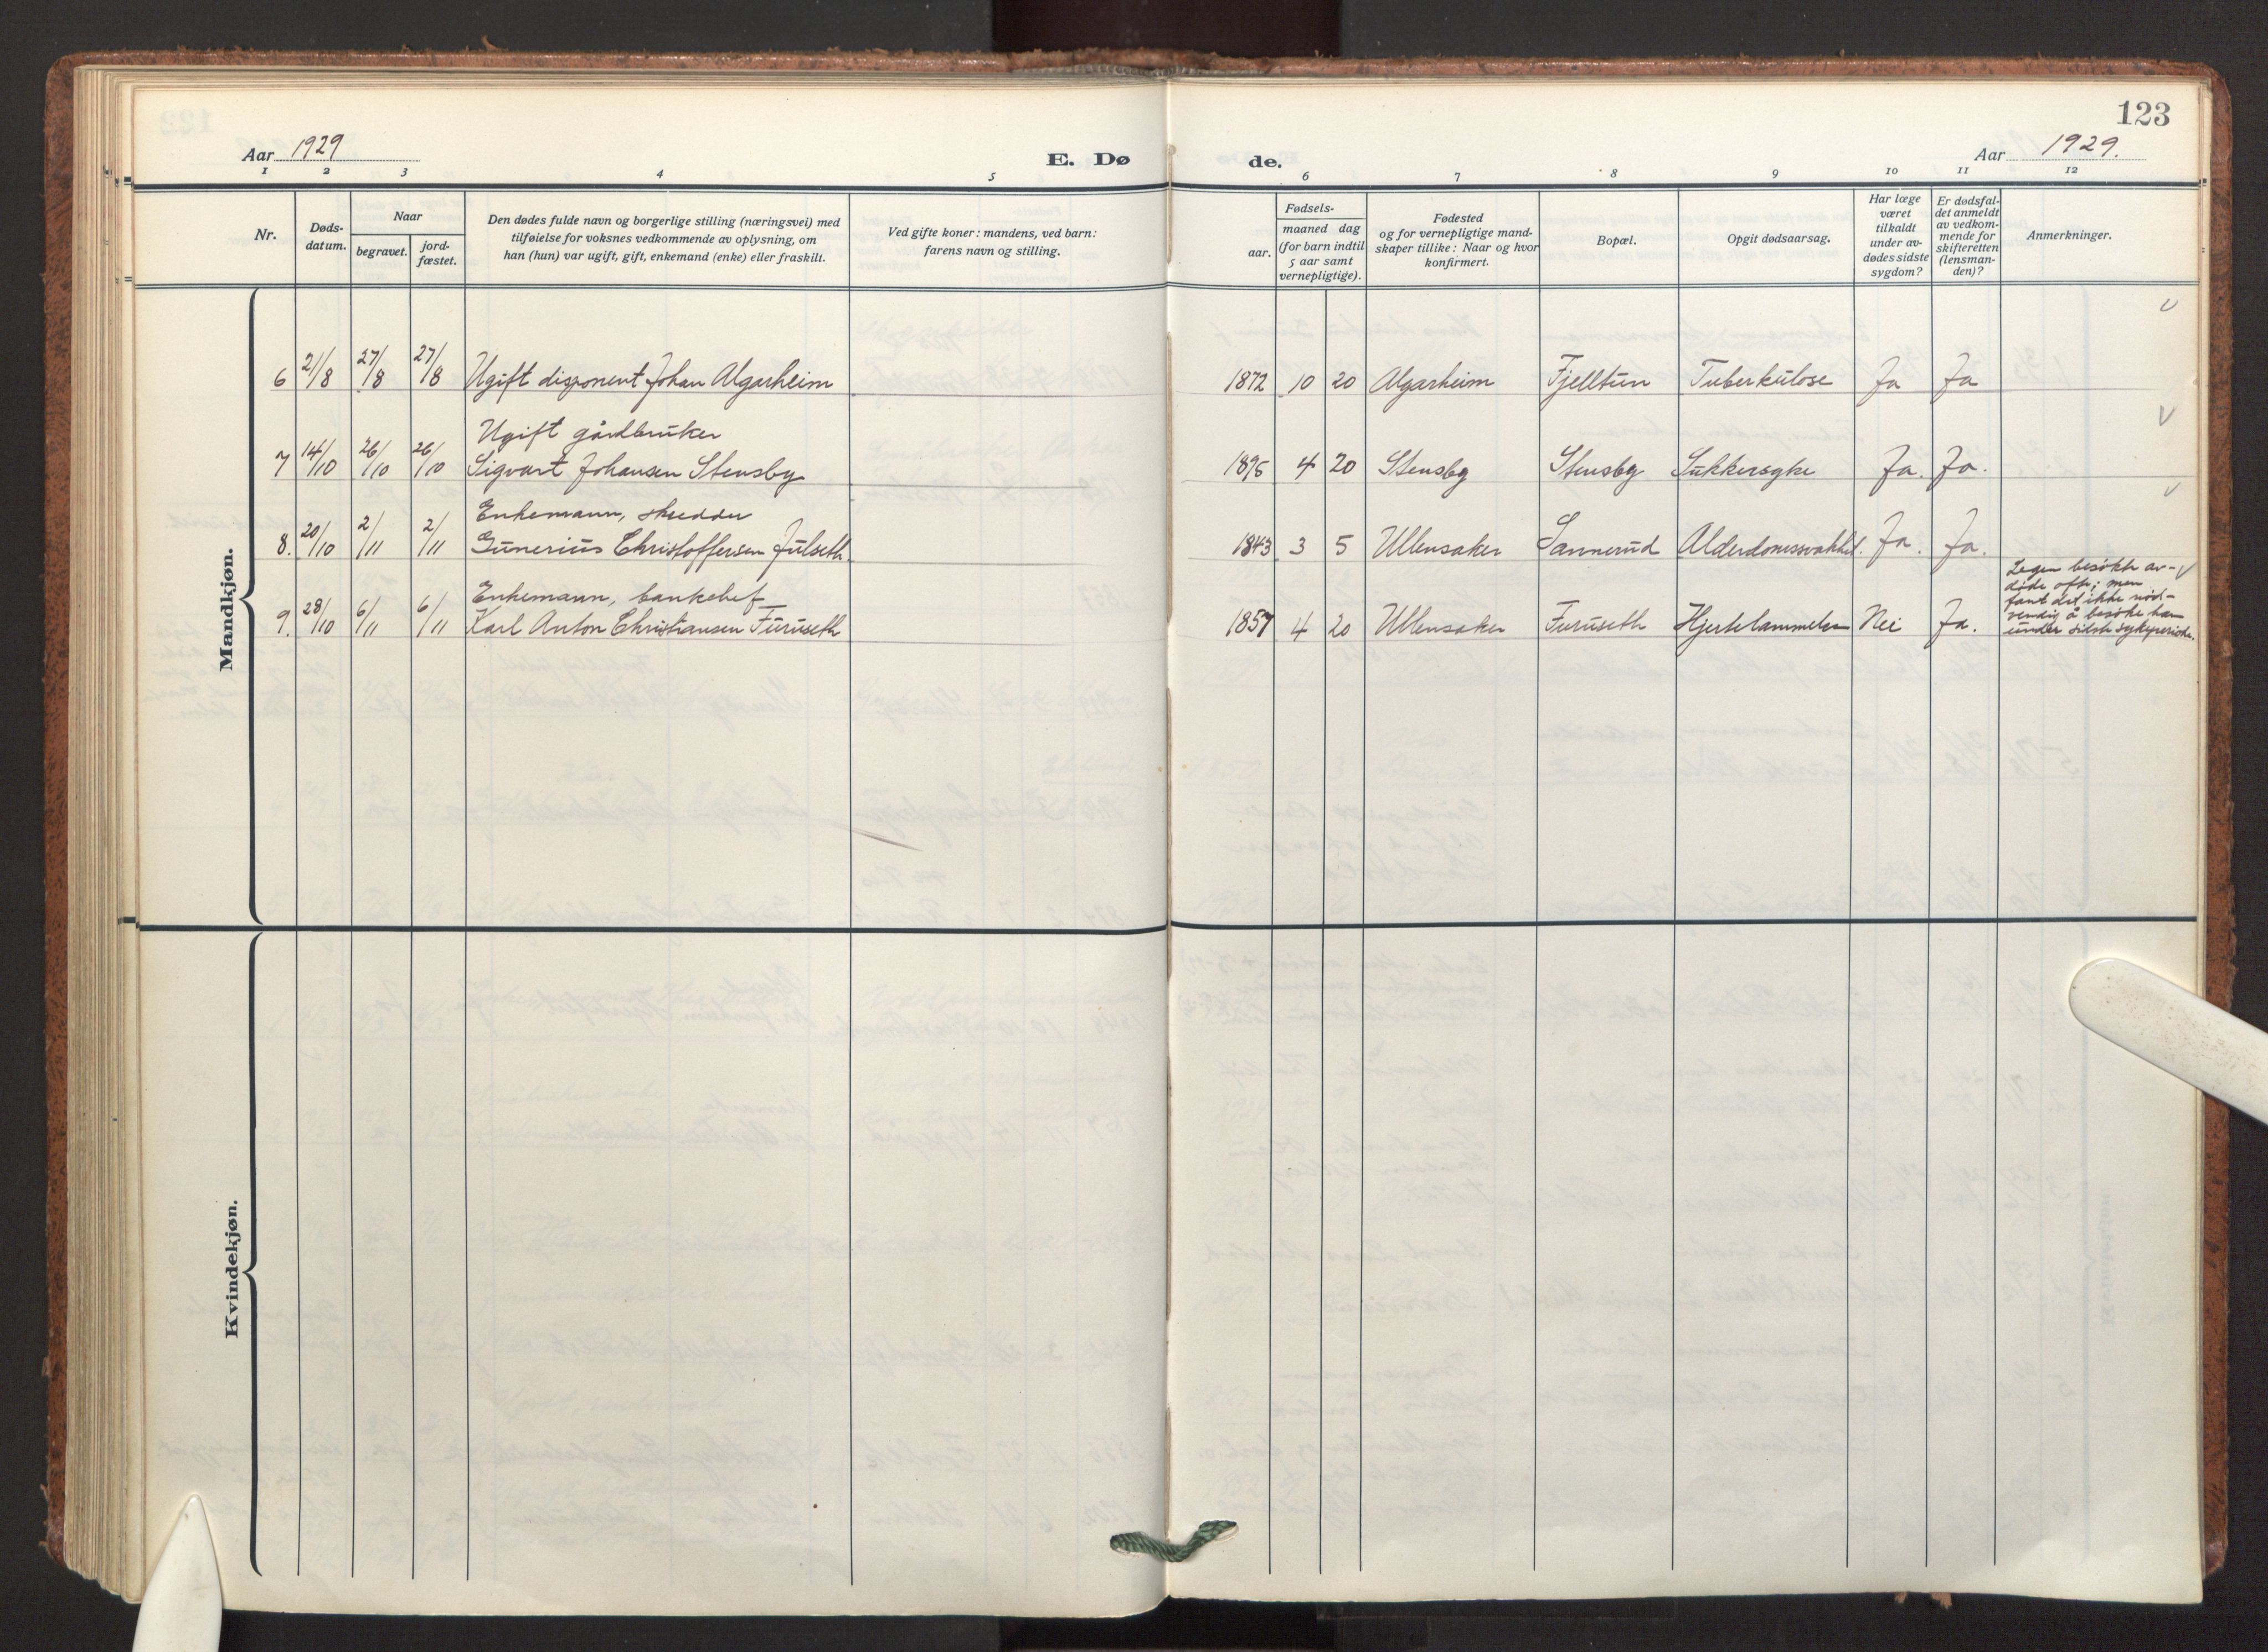 123
Aar 1929
E. Dø
de.
Aar 1929.
1 2 3 4 5 6 7 8 9 10 11 12
Nr.
Døds-
datum.
Naar
begravet.
jord-
fæstet.
Den dødes fulde navn og borgerlige stilling (næringsvei) med
tilføielse for voksnes vedkommende av oplysning, om
han (hun) var ugift, gift, enkemand (enke) eller fraskilt.
Ved gifte koner: mandens, ved barn:
farens navn og stilling.
Fødsels-
aar.
maaned dag
(for barn indtil
5 aar samt
vernepligtige).
Fødested
og for vernepligtige mand-
skaper tillike: Naar og hvor
konfirmert.
Bopæl.
Opgit dødsaarsag.
Har læge
været
tilkaldt
under av-
dødes sidste
sygdom?
Er dødsfal-
det anmeldt
av vedkom-
mende for
skifteretten
(lensman-
den)?
Anmerkninger.
Mandkjøn.
6 21/8 27/8 27/8 Ugift disponent Johan Algarheim 1872 10 20 Algarheim Fjelltun Tuberkulose Ja Ja
Ugift gårdbruker
7 14/10 26/10 26/10 Sigvart Johansen Stensby 1895 4 20 Stensby Stensby Sukkersyke Ja. Ja.
Enkemann, skredder
8. 20/10 2/11 2/11 Gunerius Christoffersen Julseth. 1843 3 5 Ullensaker Sannerud Alderdomssvakhet. Ja. Ja.
Enkemann, banksjef
9. 28/10 6/11 6/11 Karl Anton Christiansen Furuseth 1857 4 20 Ullensaker Furuseth Hjertelammelse Nei Ja.
Legen besøkte av-
døde ofte; men
fant det ikke nød-
vendig å besøke ham
under siste sykeperiode.
Kvindekjøn.